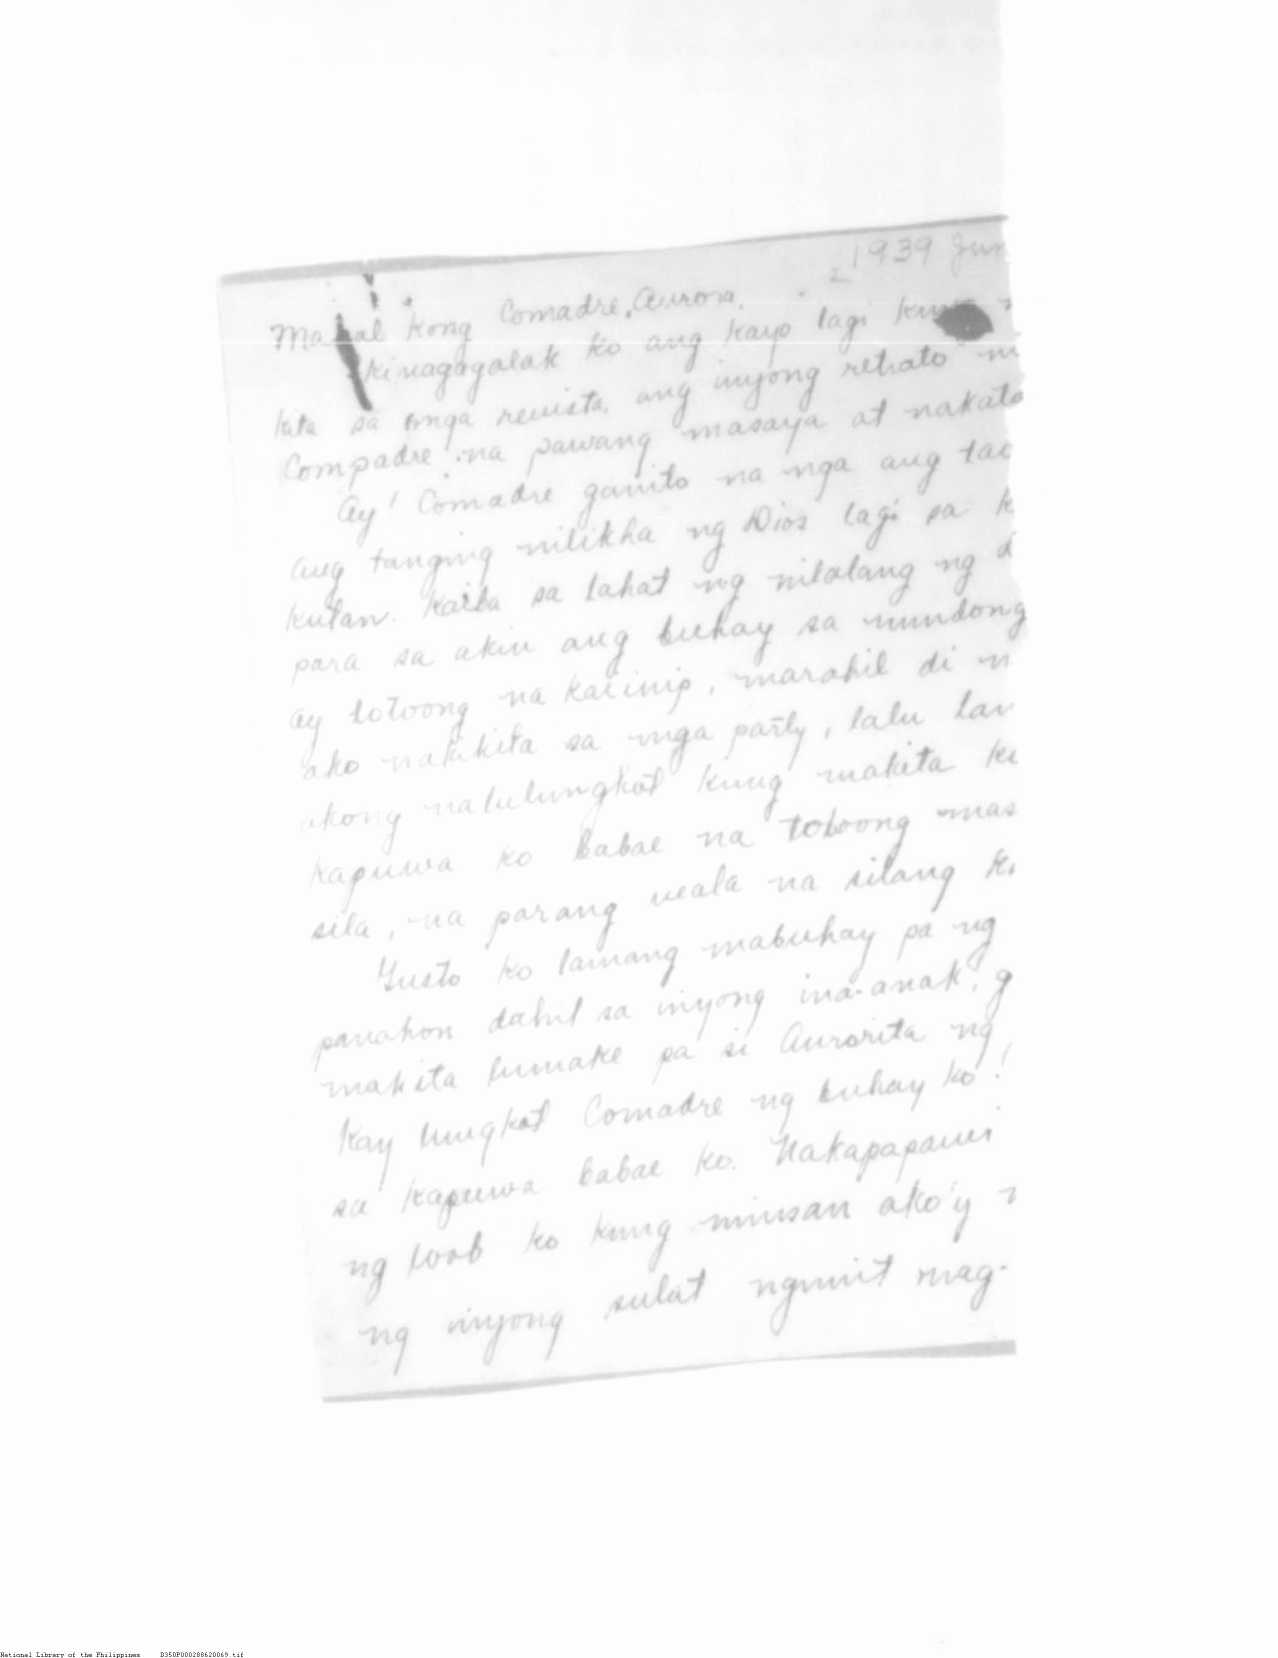 2 1939 Jun
Mahal kong Comadre, Aurora.
Kinagagalak ko ang kayo lagi
kita sa mga revista, ang inyong retrato ni
Compadre na pawang masaya at nakata
Ay! Comadre ganito na nga ang tao
ang tanging nilikha ng Dios lagi sa k
kulan. Kaiba sa lahat ng nilalang ng d
para sa akin ang buhay sa mundong
ay totoong na kaiinip, marahil di n
ako nakikita sa mga party, lalu lan
akong nalulungkot kung makita ki
kapuwa ko babae na totoong mas
sila, na parang wala na silang k
Gusto ko lamang mabuhay pa ng
panahon dahil sa inyong ina-anak, g
makita lumake pa si Aurorita ng
Kay lungkot Comadre ng buhay ko!
sa kapuwa babae ko. Nakapapawi
ng loob ko kung minsan ako'y n
ng inyong sulat ngunit mag-
National Library of the Philippines B350P000288620069.tif